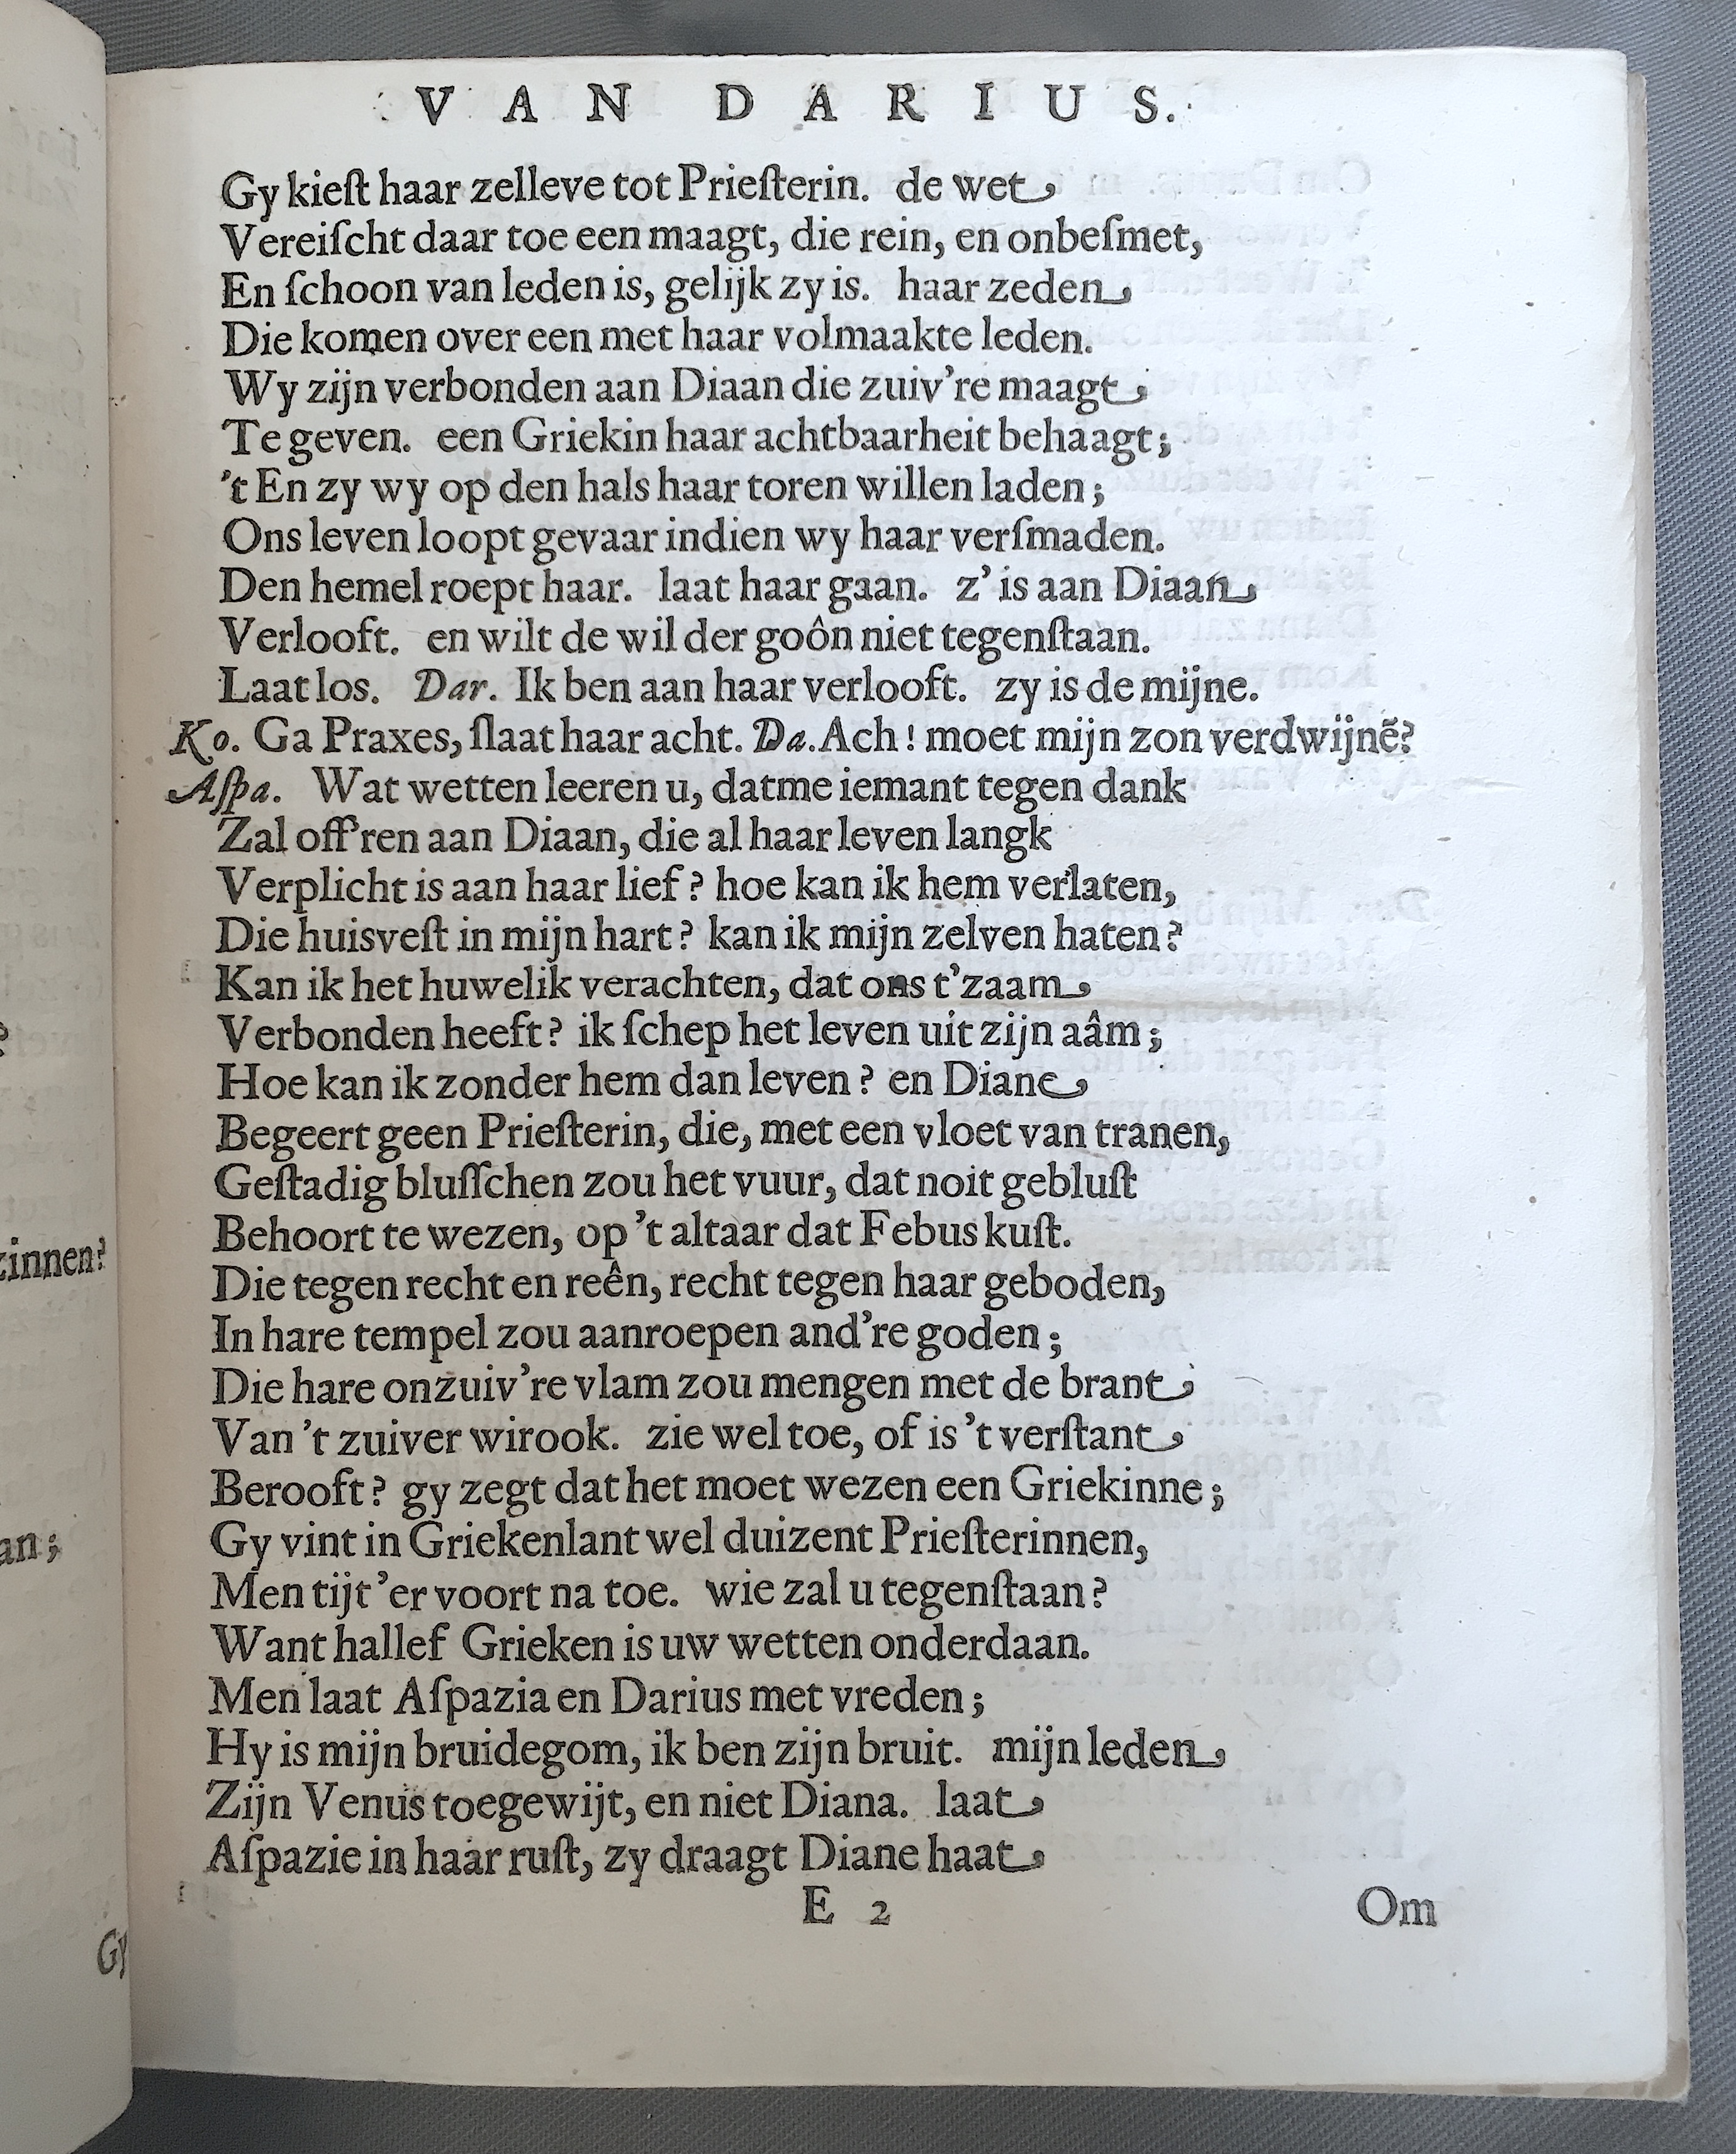 VAN DARIUS.
Gy kieſt haar zelleve tot Prieſterin. de wet
Vereiſcht daar toe een maagt, die rein, en onbeſmet,
En ſchoon van leden is, gelijk zy is. haar zeden
Die komen over een met haar volmaakte leden.
Wy zijn verbonden aan Diaan die zuiv're maagt
Te geven. een Griekin haar achtbaarheit behaagt;
't En zy wy op den hals haar toren willen laden;
Ons leven loopt gevaar indien wy haar verſmaden.
Den hemel roept haar. laat haar gaan. z' is aan Diaan
Verlooft. en wilt de wil der goôn niet tegenſtaan.
Laat los. Dar. Ik ben aan haar verlooft. zy is de mijne.
Ko. Ga Praxes, ſlaat haar acht. Da. Ach! moet mijn zon verdwijnẽ?
Aſpa. Wat wetten leeren u, datme iemant tegen dank
Zal off'ren aan Diaan, die al haar leven langk
Verplicht is aan haar lief? hoe kan ik hem verlaten,
Die huisveſt in mijn hart? kan ik mijn zelven haten?
Kan ik het huwelik verachten, dat ons t'zaam
Verbonden heeft? ik ſchep het leven uit zijn aâm;
Hoe kan ik zonder hem dan leven? en Diane
Begeert geen Prieſterin, die, met een vloet van tranen,
Geſtadig bluſſchen zou het vuur, dat noit gebluſt
Behoort te wezen, op 't altaar dat Febus kuſt.
Die tegen recht en reên, recht tegen haar geboden,
In hare tempel zou aanroepen and're goden;
Die hare onzuiv're vlam zou mengen met de brant
Van 't zuiver wirook. zie wel toe, of is 't verſtant
Berooft? gy zegt dat het moet wezen een Griekinne;
Gy vint in Griekenlant wel duizent Prieſterinnen,
Men tijt 'er voort na toe. wie zal u tegenſtaan?
Want hallef Grieken is uw wetten onderdaan.
Men laat Aſpazia en Darius met vreden;
Hy is mijn bruidegom, ik ben zijn bruit. mijn leden
Zijn Venus toegewijt, en niet Diana. laat
Aſpazie in haar ruſt, zy draagt Diane haat
E 2
Om
zinnen?
an;
Gy